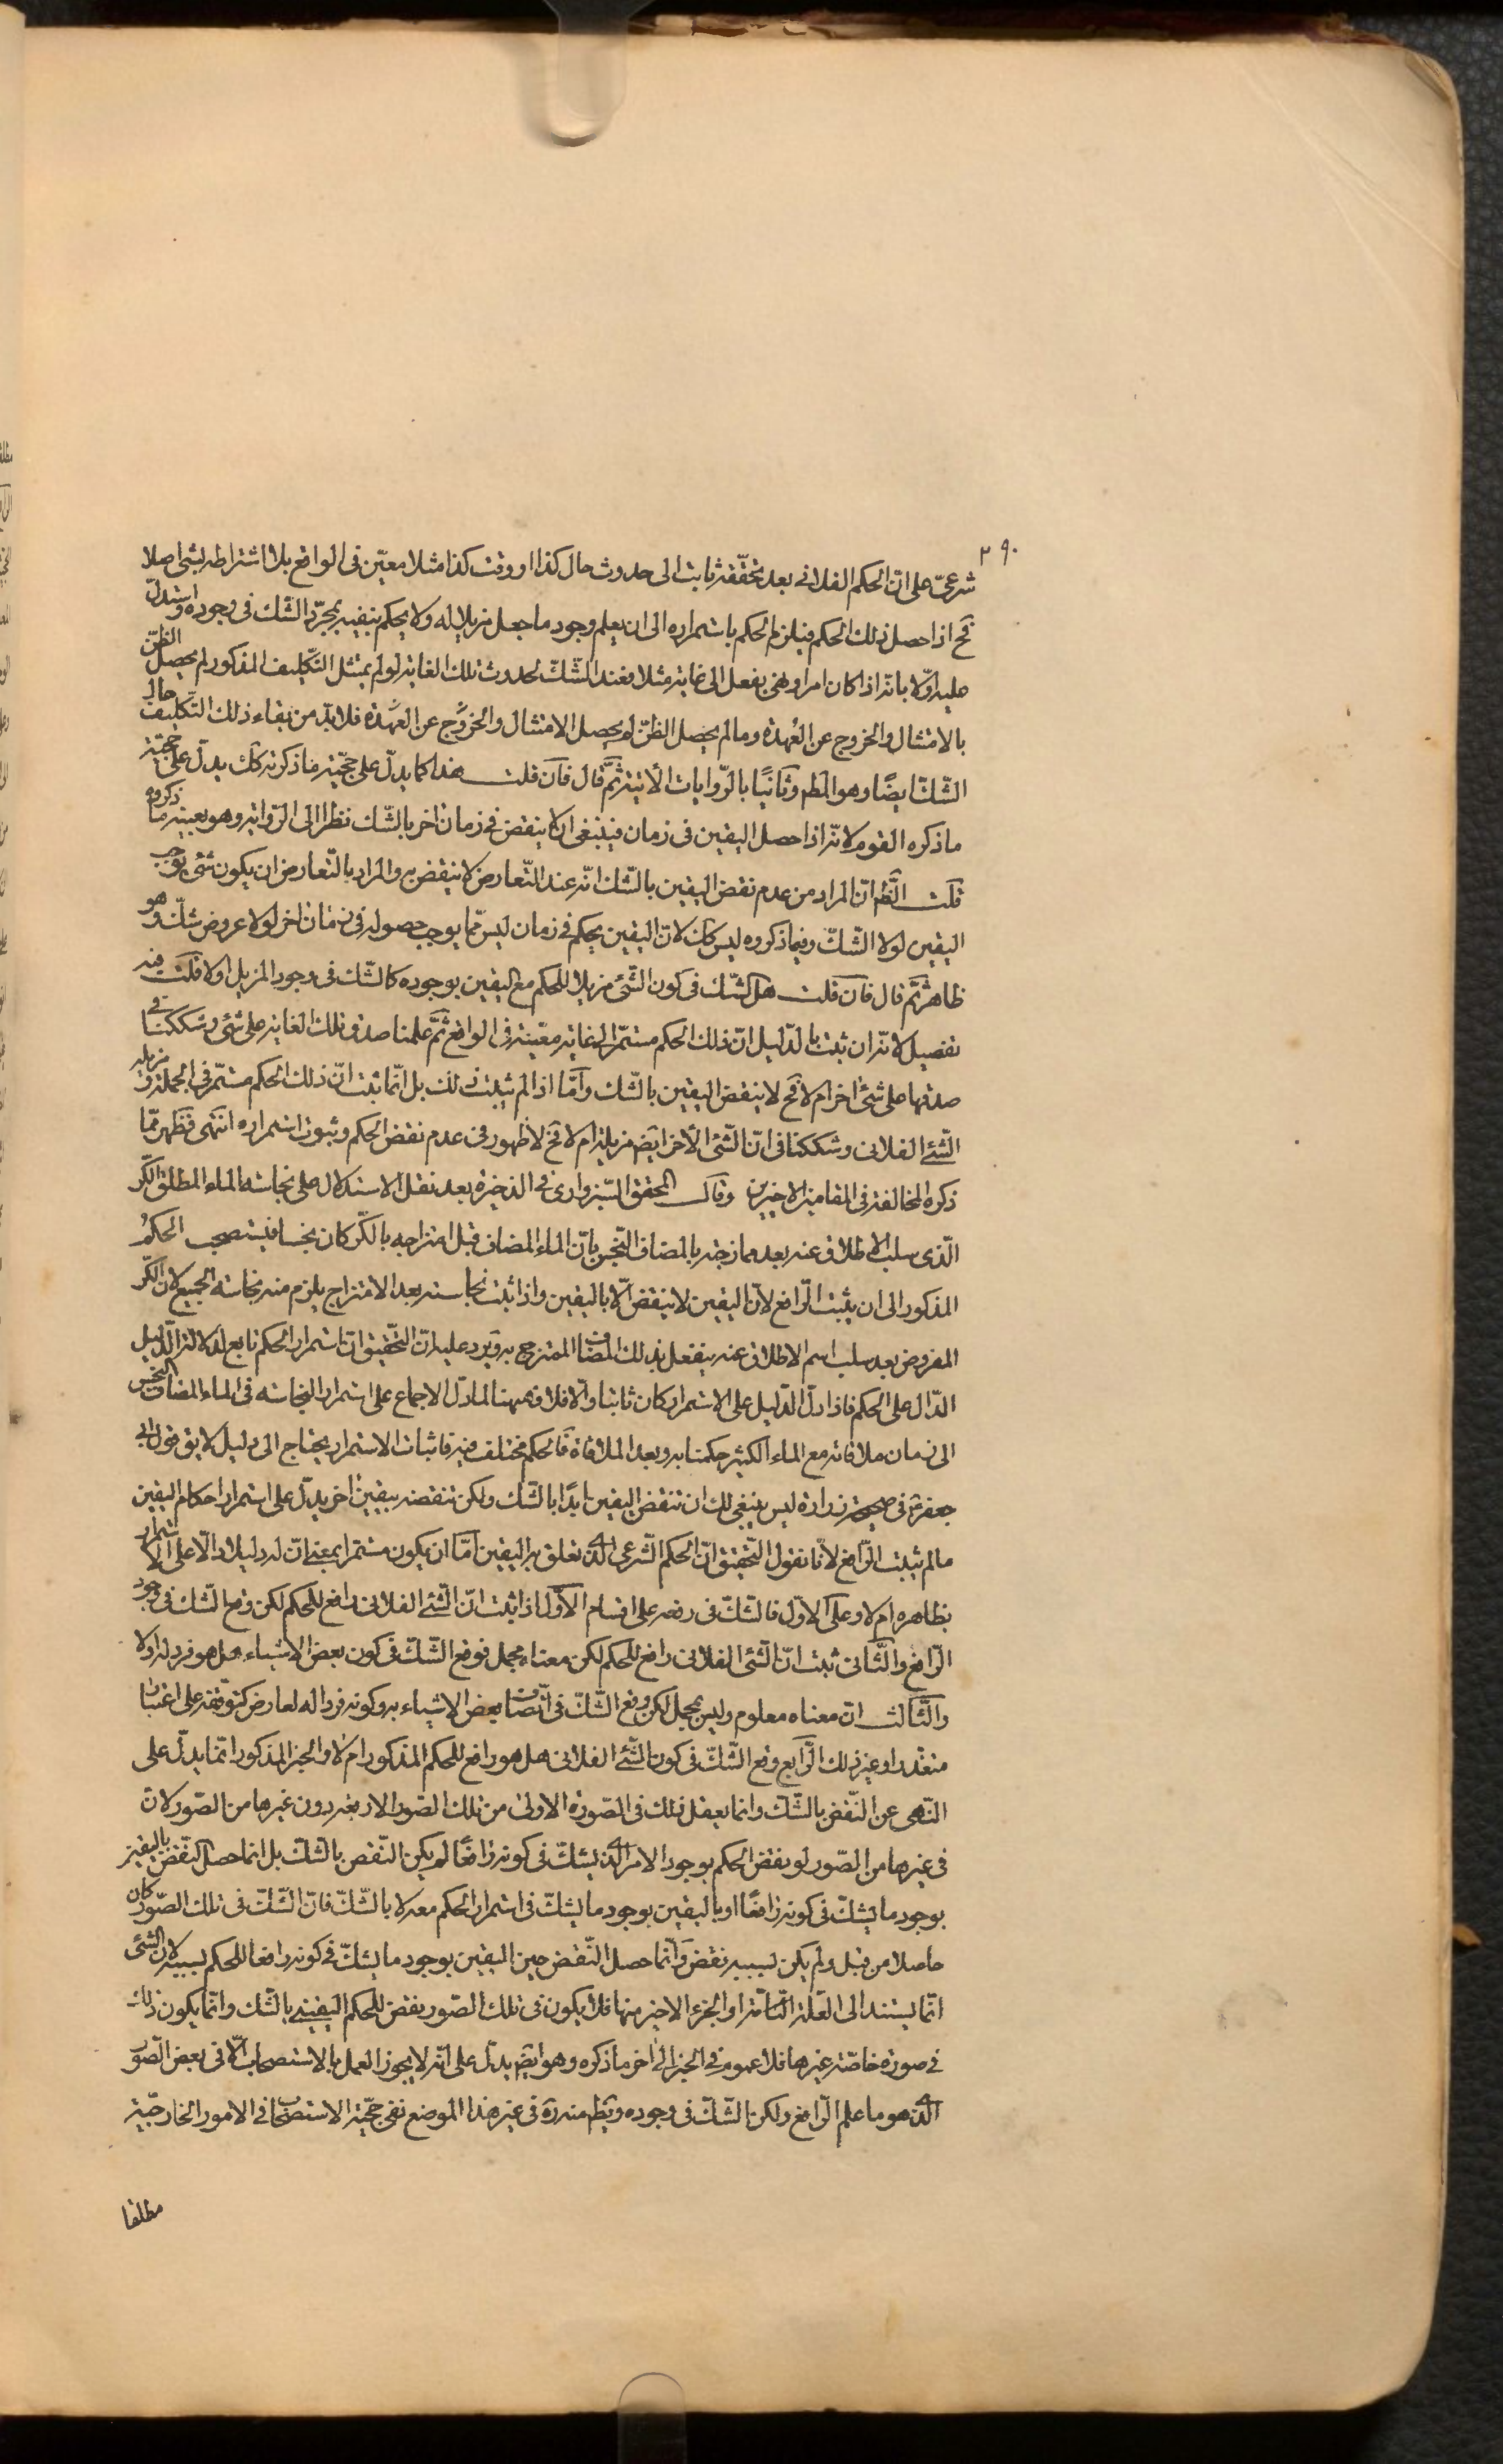 ٢٩٠
شرعيّ على انّ الحكم الفلانى بعد تحقّقه ثابت الى حدوث حال كذا او وقت كذا مثلا معيّن فى الواقع بلا اشتراطه بشئ اصلا
فح اذا حصل ذلك الحكم فيلزم الحكم باستمراره الى ان يعلم وجود ما جعل مزيلا له ولا يحكم بنفيه بمجرّد الشّك فى وجوده واستدلّ
عليه اوّلا بانّه اذا كان امر او نهى بفعل الى غاية مثلا فعند الشّكّ بحدوث تلك الغاية لو لم يمتثل التّكليف المذكور لم يحصل الظنّ
بالامتثال والخروج عن العُهدة وما لم يحصل الظنّ لم يحصل الامتثال والخروج عن العهدة فلابدّ من بقاء ذلك التّكليف حال
الشّكّ ايضًا وهو المط وثانيًا بالرّوايات الآتية ثمّ قال فان قلت هذا كما يدلّ على حجّية ما ذكرته كك يدلّ على حجّية
ما ذكره القوم لانّه اذا حصل اليقين فى زمان فينبغى ان لا ينقض فى زمان اخر بالشّك نظرا الى الرّواية وهو بعينه ما ذكروه
قلت الظّ انّ المراد من عدم نقض اليقين بالشّك انّه عند التّعارض لا ينقض به والمراد بالتّعارض ان يكون شئ يوجب
اليقين لولا الشّكّ وفيما ذكروه ليس كك لانّ اليقين بحكم فى زمان ليس ممّا يوجب حصوله فى زمان اخر لولا عروض شكّ وهو
ظاهر ثمّ قال فان قلت هل الشّك فى كون الشّئ مزيلا للحكم مع اليقين بوجوده كالشّك فى وجود المزيل اولا قلت فيه
تفصيل لانّه ان ثبت بالدّليل انّ ذلك الحكم مستمّر الى غاية معيّنة فى الواقع ثمّ علمنا صدق تلك الغاية على شئ وشككنا فى
صدقها على شئ اخر ام لا فح لا ينقض اليقين بالشّك وامّا اذا لم يثبت ذلك بل انّما ثبت انّ ذلك الحكم مستمّر فى الجملة ومزيله
الشّئ الفلانى وشككنا فى انّ الشّئ الآخر ايض مزيله ام لا فح لا ظهور فى عدم نقض الحكم وثبوت استمراره انتهى فظهر ممّا
ذكره المخالفة فى المقامين الاخيرين وقال المحقق السّبزوارى فى الذخيرة بعد نقل الاستدلال على نجاسة الماء المطلق الكّر
الّذى سلب الاطلاق عنه بعد ممازجته بالمضاف النّجس بانّ الماء المضاف قبل امتزاجه بالكّر كان نجسا فيستصحب الحكمُ
المذكور الى ان يثبت الرّافع لانّ اليقين لا ينقض الّا باليقين واذا ثبت نجاسته بعد الامتزاج يلزم منه نجاسة الجميع لانّ الكّر
المفروض بعد سلب اسم الاطلاق عنه ينفعل بذلك المضاف الممتزج به ويرد عليه انّ التّحقيق انّ استمرار الحكم تابع لدلالة الدّليل
الدّال على الحكم فاذا دلّ الدّليل على الاستمرار كان ثابتا والّا فلا وههنا لما دلّ الاجماع على استمرار النجاسة فى الماء المضاف النّجس
الى زمان ملاقاته مع الماء الكثير حكمنا به وبعد الملاقاة فالحكم مختلف فيه فاثبات الاستمرار يحتاج الى دليل لا يق قول ابى
جعفر ع فى صحيحة زرارة ليس ينبغى لك ان تنقض اليقين ابدًا بالشّك ولكن تنقضه بيقين اخر يدلّ على استمرار احكام اليقين
ما لم يثبت الرّافع لانّا نقول التّحقيق انّ الحكم الشّرعى الّذى تعلق به اليقين امّا ان يكون مستمرا بمعنى انّ له دليلا دالّا على الاستمرار
بظاهره ام لا وعلى الاوّل فالشّكّ فى رفعه على اقسام الاوّل اذا ثبت انّ الشّئ الفلانى رافع للحكم لكن وقع الشّك فى وجود
الرّافع والثّانى ثبت انّ الشّئ الفلانى رافع للحكم لكن معناه مجمل فوقع الشّكّ فى كون بعض الاشياء هل هو فرد له اولا
والثّالث انّ معناه معلوم وليس بمجمل لكن وقع الشّكّ فى اتّصاف بعض الاشياء به وكونه فردا له لعارض كتوقّفه على اعتبار
متعذر او غير ذلك الرّابع وقع الشّكّ فى كون الشّئ الفلانى هل هو رافع للحكم المذكور ام لا والخبر المذكور انّما يدلّ على
النّهى عن النّقض بالشّكّ وانما يعقل ذلك فى الصّورة الاولى من تلك الصّور الاربعة دون غيرها من الصّور لانّ
فى غيرها من الصّور لو نقض الحكم بوجود الامر الّذى يشكّ فى كونه رافعًا لم يكن النّقض بالشّك بل انما حصل النّقض باليقين
بوجود ما يشكّ فى كونه رافعًا او باليقين بوجود ما يشكّ فى استمرار الحكم معه لا بالشّكّ فانّ الشّكّ فى تلك الصّور كان
حاصلا من قبل ولم يكن بسببه نقض وانّما حصل النّقض حين اليقين بوجود ما يشكّ فى كونه رافعا للحكم بسببه لانّ الشّئ
انّما يستند الى العلّة التّامّة او الجزء الاخير منها فلا يكون فى تلك الصّور نقض للحكم اليقينى بالشّك وانّما يكون ذلك
فى صورة خاصّة غيرها فلا عموم فى الخبر الى اخر ما ذكره وهو ايض يدلّ على انّه لا يجوز العمل بالاستصحاب الّا فى بعض الصّور
الّذى هو ما علم الرّافع ولكن الشّكّ فى وجوده ويظ منه ره فى غير هذا الموضع نفى حجّية الاستصحاب فى الامور الخارجيّة
مطلقا